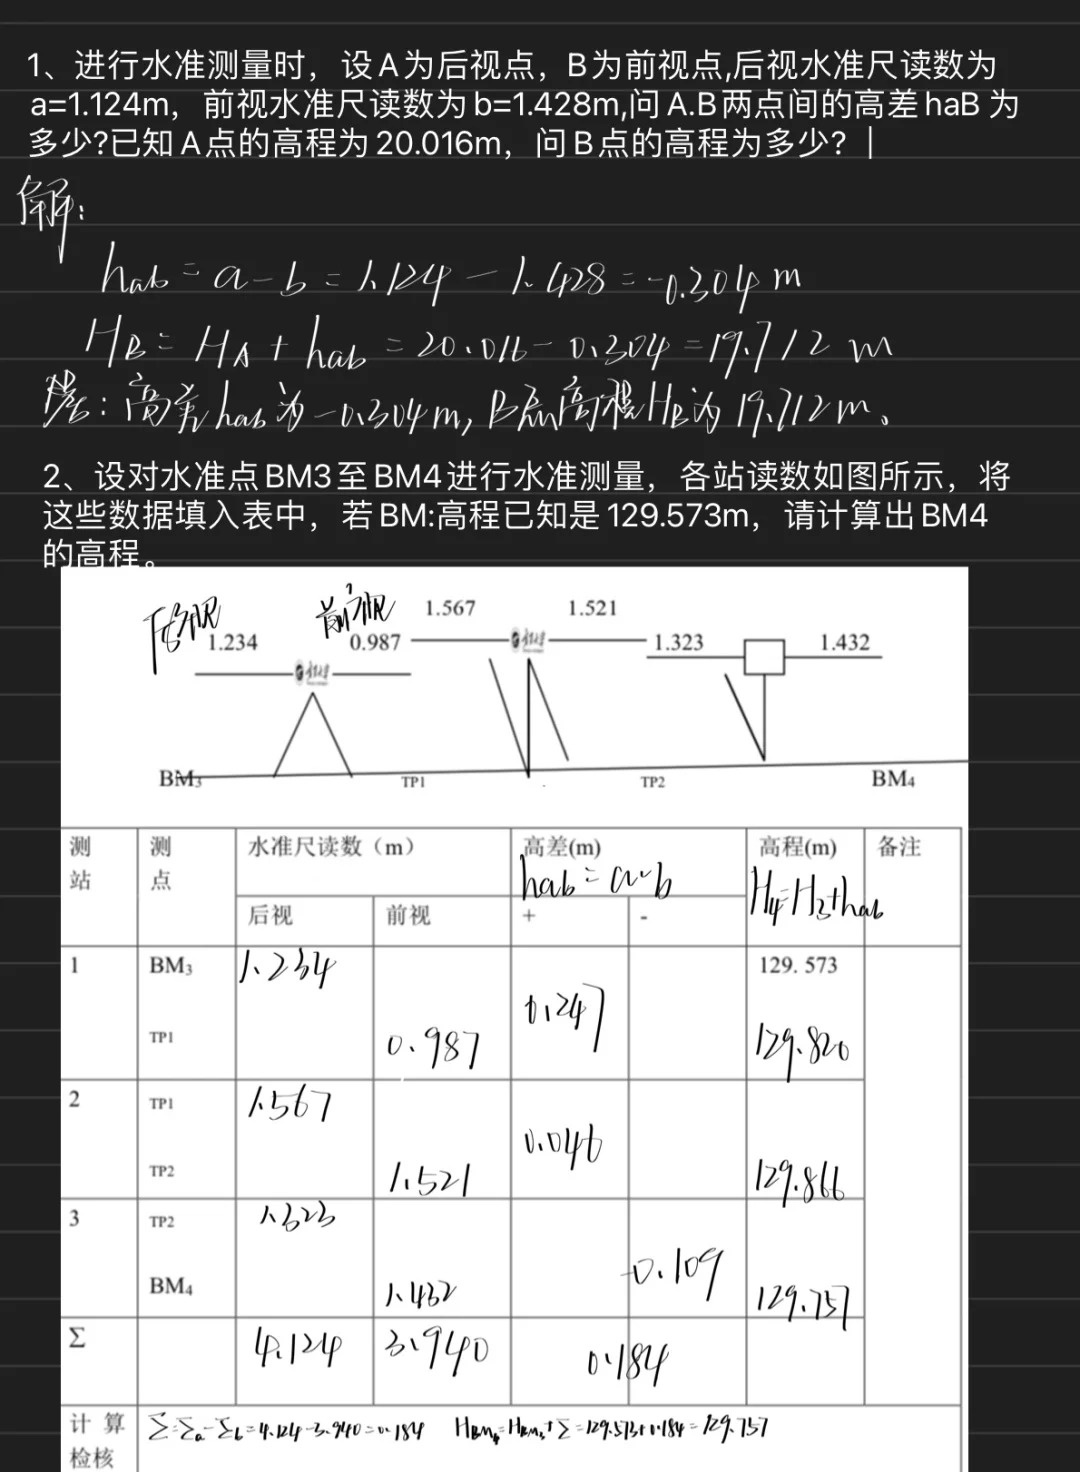 1、进行水准测量时，设A为后视点，B为前视点,后视水准尺读数为
a=1.124m，前视水准尺读数为b=1.428m,问A.B两点间的高差haB为
多少?已知A点的高程为20.016m，问B点的高程为多少？
解:
hab=a-b=1.124-1.428=-0.304m
HB=HA+hab=20.016-0.304=19.712m
答:高差hab为-0.304m,B点高程HB为19.712m。
2、设对水准点BM3至BM4进行水准测量，各站读数如图所示，将
这些数据填入表中，若BM:高程已知是129.573m，请计算出BM4
的高程。
后视 前视 1.567 1.521
1.234 0.987 1.323 1.432
BM3 TP1 TP2 BM4
测站 测点 水准尺读数（m） 高差(m) 高程(m) 备注
hab=a-b H4=H3+hab
后视 前视 + -
1 BM3 1.234 129.573
0.247
TP1 0.987 129.820
2 TP1 1.567
0.046
TP2 1.521 129.866
3 TP2 1.323
-0.109
BM4 1.432 129.757
Σ 4.124 3.940 0.184
计算检核 Σ=Σa-Σb=4.124-3.940=0.184 HBM4=HBM3+Σ=129.573+0.184=129.757